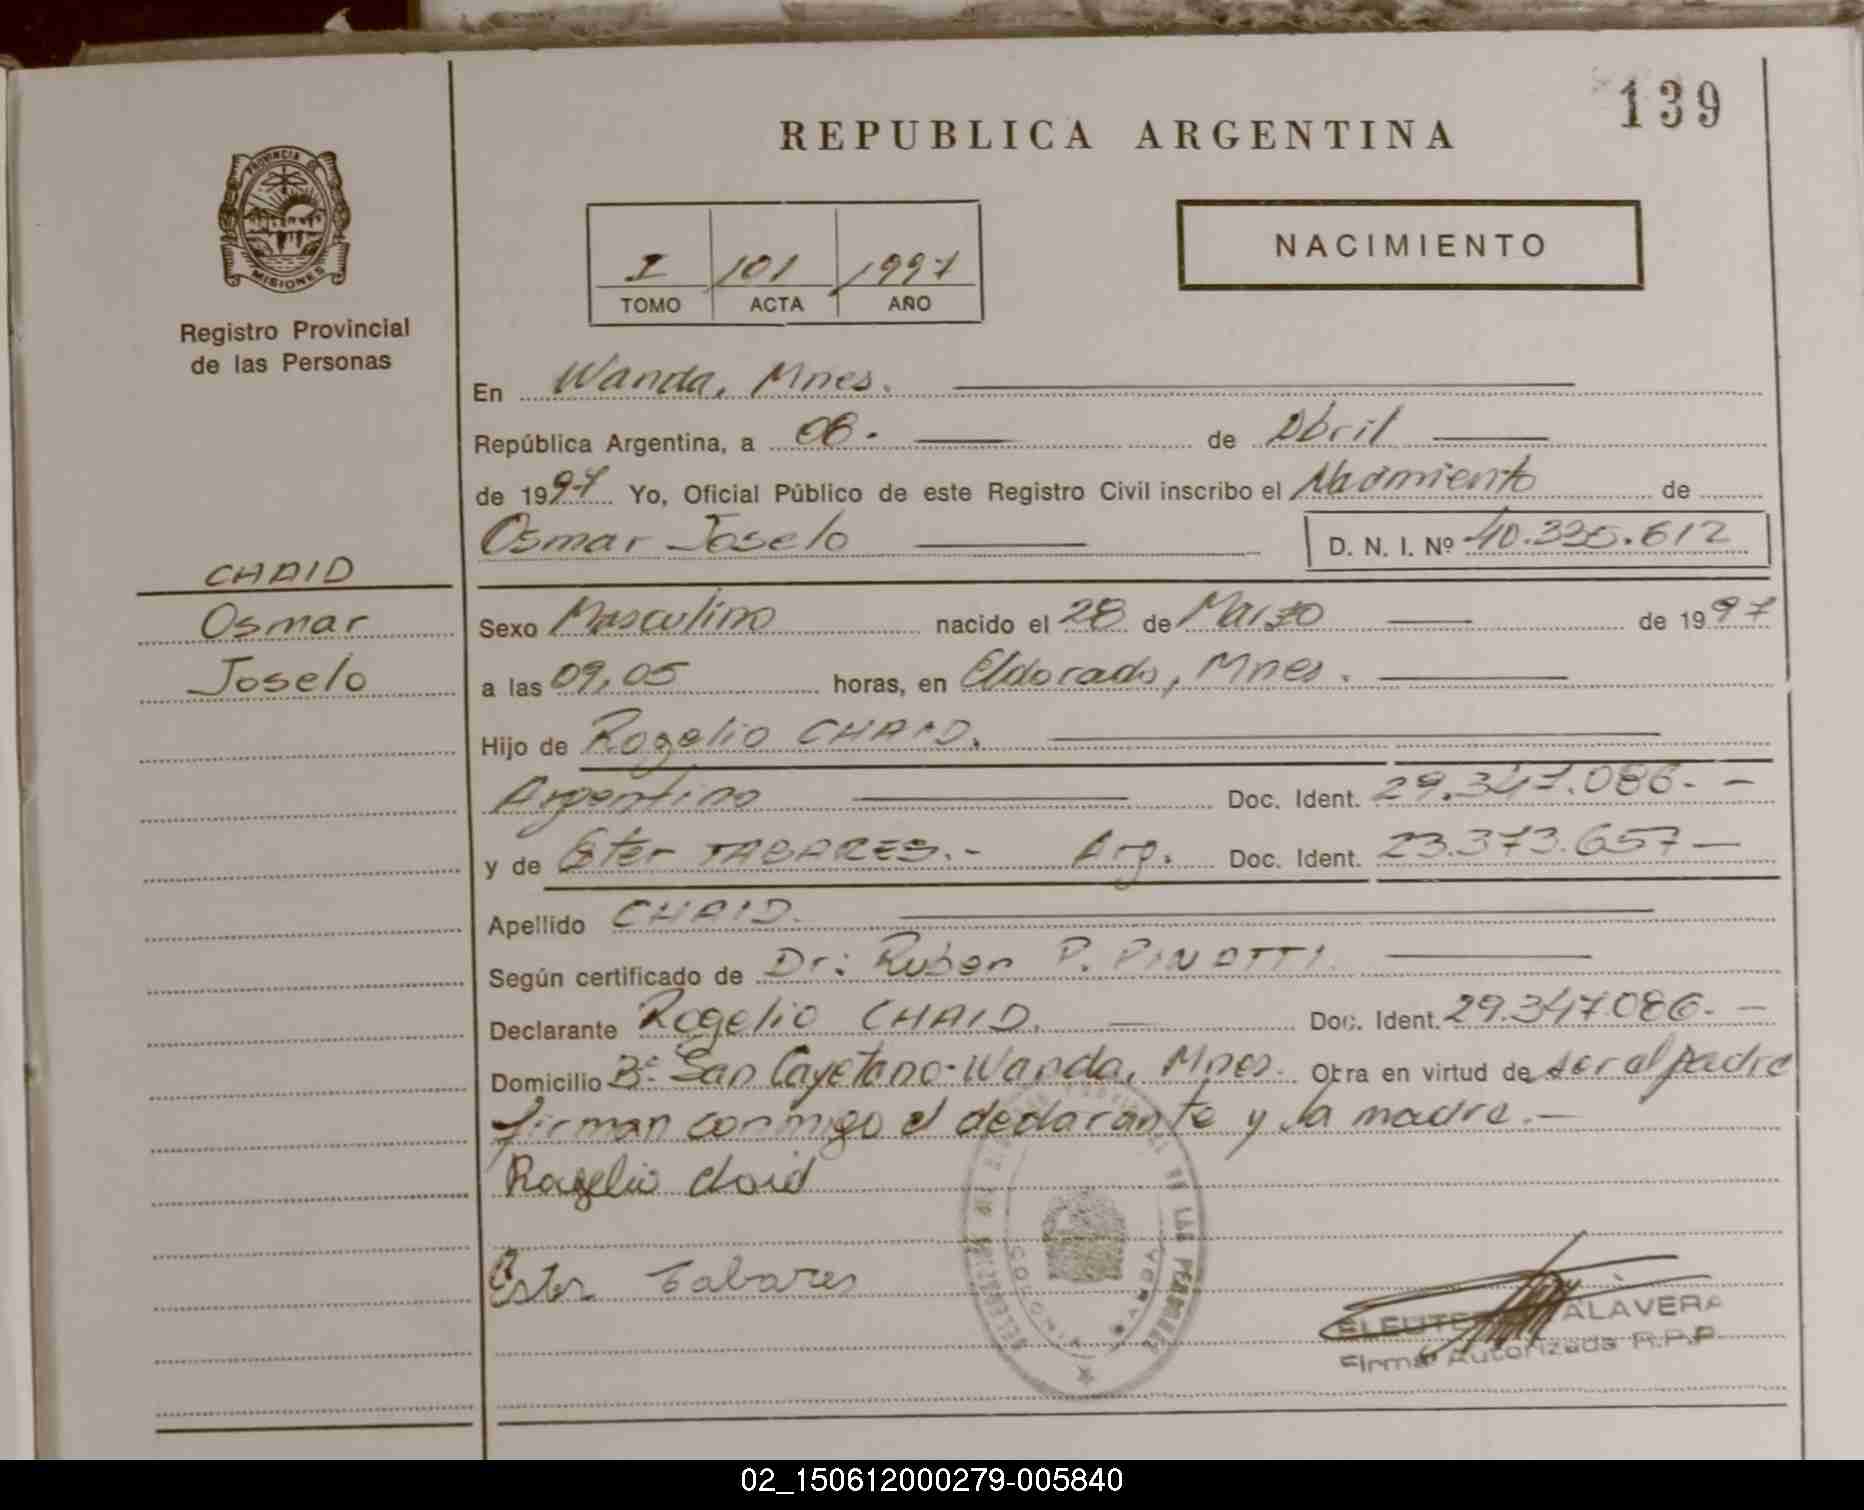 139
REPUBLICA ARGENTINA
PROVINCIA DE
MISIONES
Registro Provincial
de las Personas
NACIMIENTO
I 101 1997
TOMO ACTA AÑO
En Wanda, Mnes.
República Argentina, a 06. de Abril
de 1997 Yo, Oficial Público de este Registro Civil inscribo el Nacimiento de
Osmar Joselo D. N. I. Nº 40.335.612
CHAID
Osmar
Joselo
Sexo Masculino nacido el 28 de Marzo de 1997
a las 09,05 horas, en Eldorado, Mnes.
Hijo de Rogelio CHAID.
Argentino Doc. Ident. 29.347.086.-
y de Ester TABARES.- Arg. Doc. Ident. 23.373.657-
Apellido CHAID.
Según certificado de Dr: Ruben P. PINOTTI.
Declarante Rogelio CHAID. Doc. Ident. 29.347.086.-
Domicilio Bº. San Cayetano-Wanda, Mnes. Obra en virtud de ser el padre
firman conmigo el declarante y la madre.-
Rogelio chaid
Ester Tabares
COLONIA WANDA
ALAVERA
Firma Autorizada R.P.P.
02_150612000279-005840